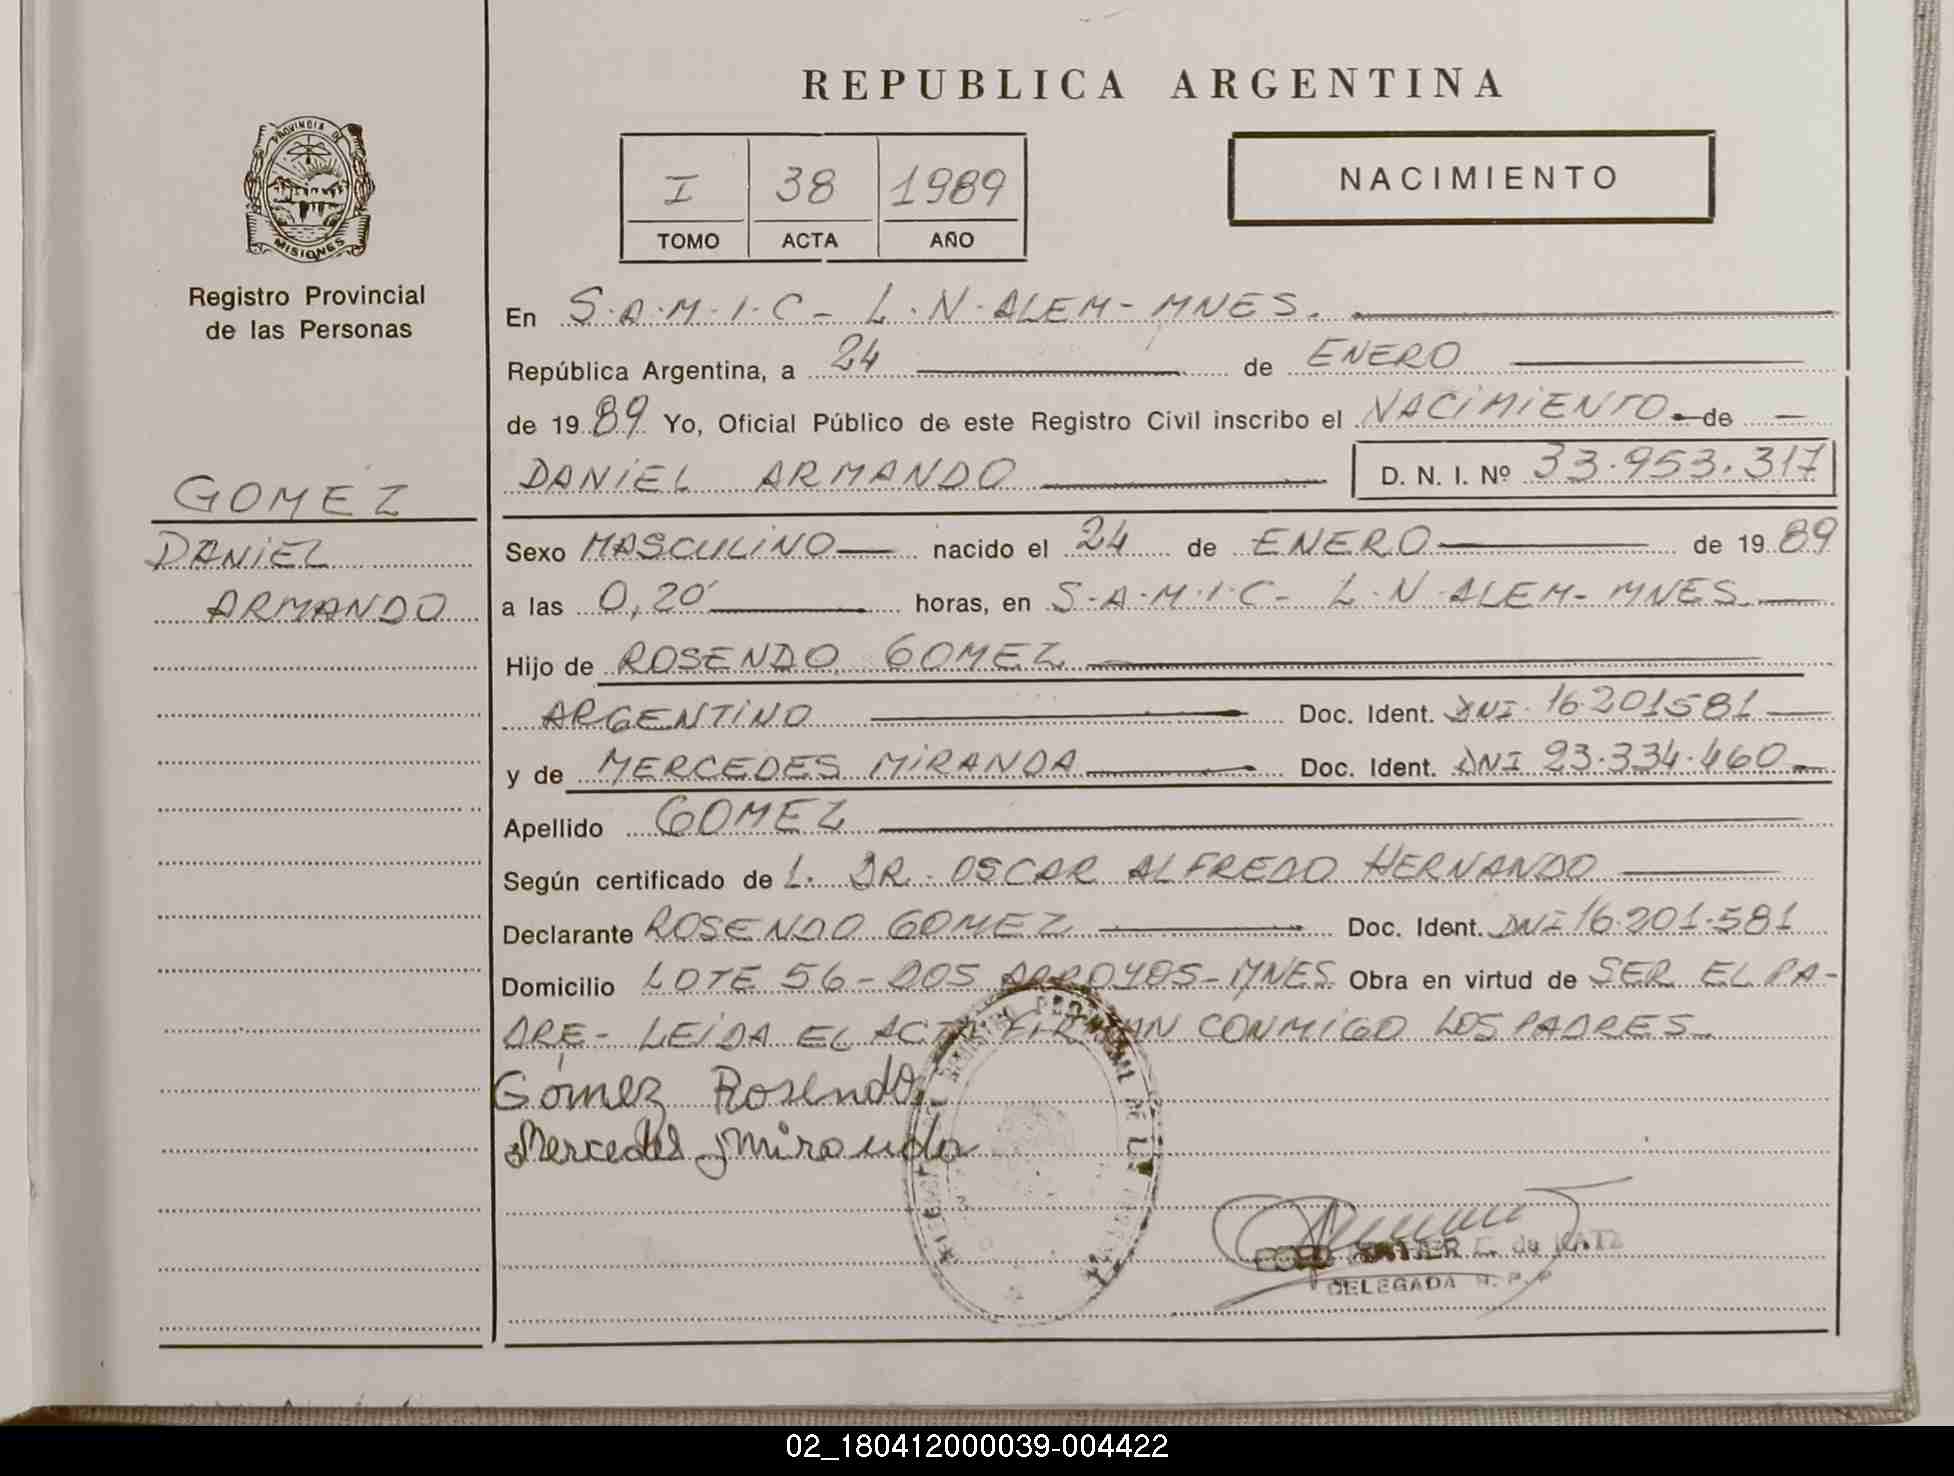 REPUBLICA ARGENTINA
PROVINCIA DE
MISIONES
Registro Provincial
de las Personas
I 38 1989
TOMO ACTA AÑO
NACIMIENTO
En S.A.M.I.C - L.N.ALEM - MNES.
República Argentina, a 24 de ENERO
de 1989 Yo, Oficial Público de este Registro Civil inscribo el NACIMIENTO de
DANIEL ARMANDO D. N. I. Nº 33.953.317
GOMEZ
DANIEL
ARMANDO
Sexo MASCULINO nacido el 24 de ENERO de 1989
a las 0,20' horas, en S.A.M.I.C - L.N.ALEM - MNES.
Hijo de ROSENDO GOMEZ
ARGENTINO Doc. Ident. DNI. 16.201581
y de MERCEDES MIRANDA Doc. Ident. DNI 23.334.460
Apellido GOMEZ
Según certificado de L. DR. OSCAR ALFREDO HERNANDO
Declarante ROSENDO GOMEZ Doc. Ident. DNI 16.201.581
Domicilio LOTE 56 - DOS ARROYOS - MNES Obra en virtud de SER EL PA-
DRE - LEIDA EL ACTA FIRMAN CONMIGO LOS PADRES
Gómez Rosendo
Mercedes Miranda
DELEGADA R.P.P
02_180412000039-004422